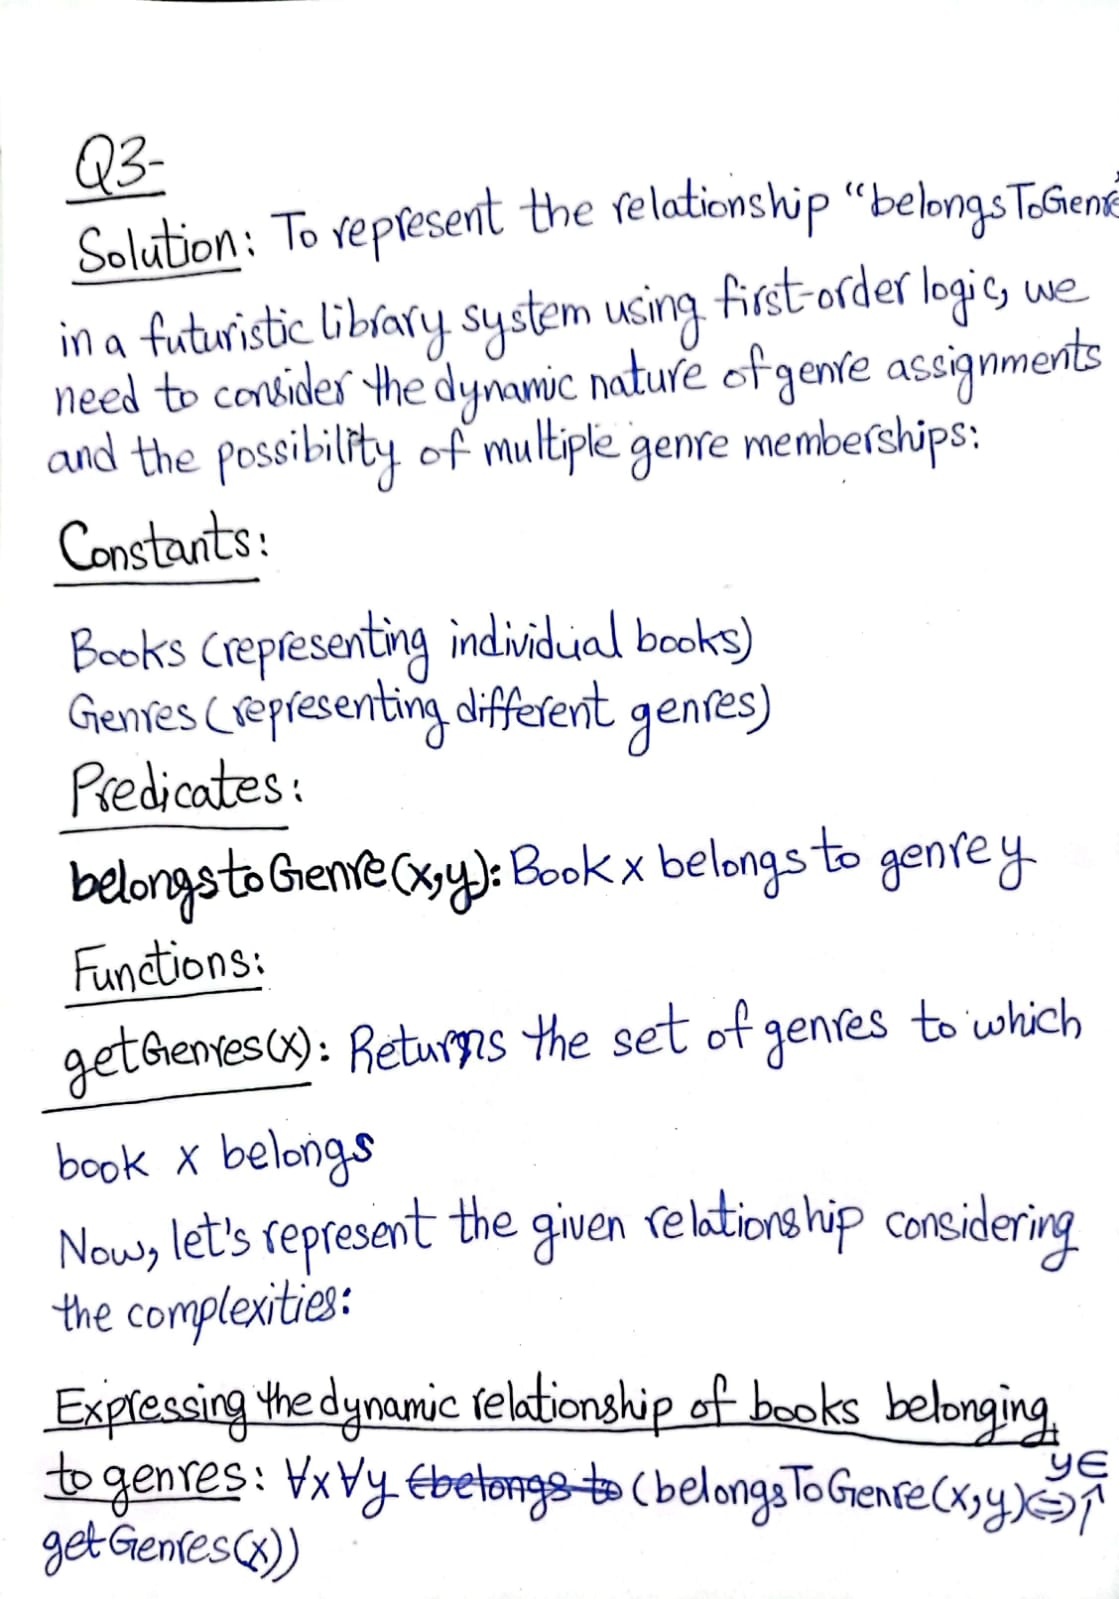 Q3-
Solution: To represent the relationship "belongsToGenre"
in a futuristic library system using first-order logic, we
need to consider the dynamic nature of genre assignments
and the possibility of multiple genre memberships:
Constants:
Books (representing individual books)
Genres (representing different genres)
Predicates:
belongstoGenre(x,y): Book x belongs to genre y
Functions:
getGenres(x): Returns the set of genres to which
book x belongs
Now, let's represent the given relationship considering
the complexities:
Expressing the dynamic relationship of books belonging
to genres: ∀x∀y (belongsToGenre(x,y)⇔ y∈
getGenres(x))